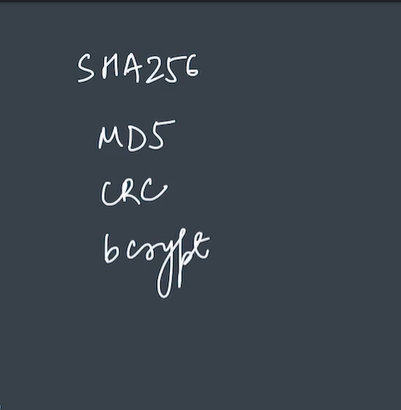 SHA256
MD5
CRC
bcrypt